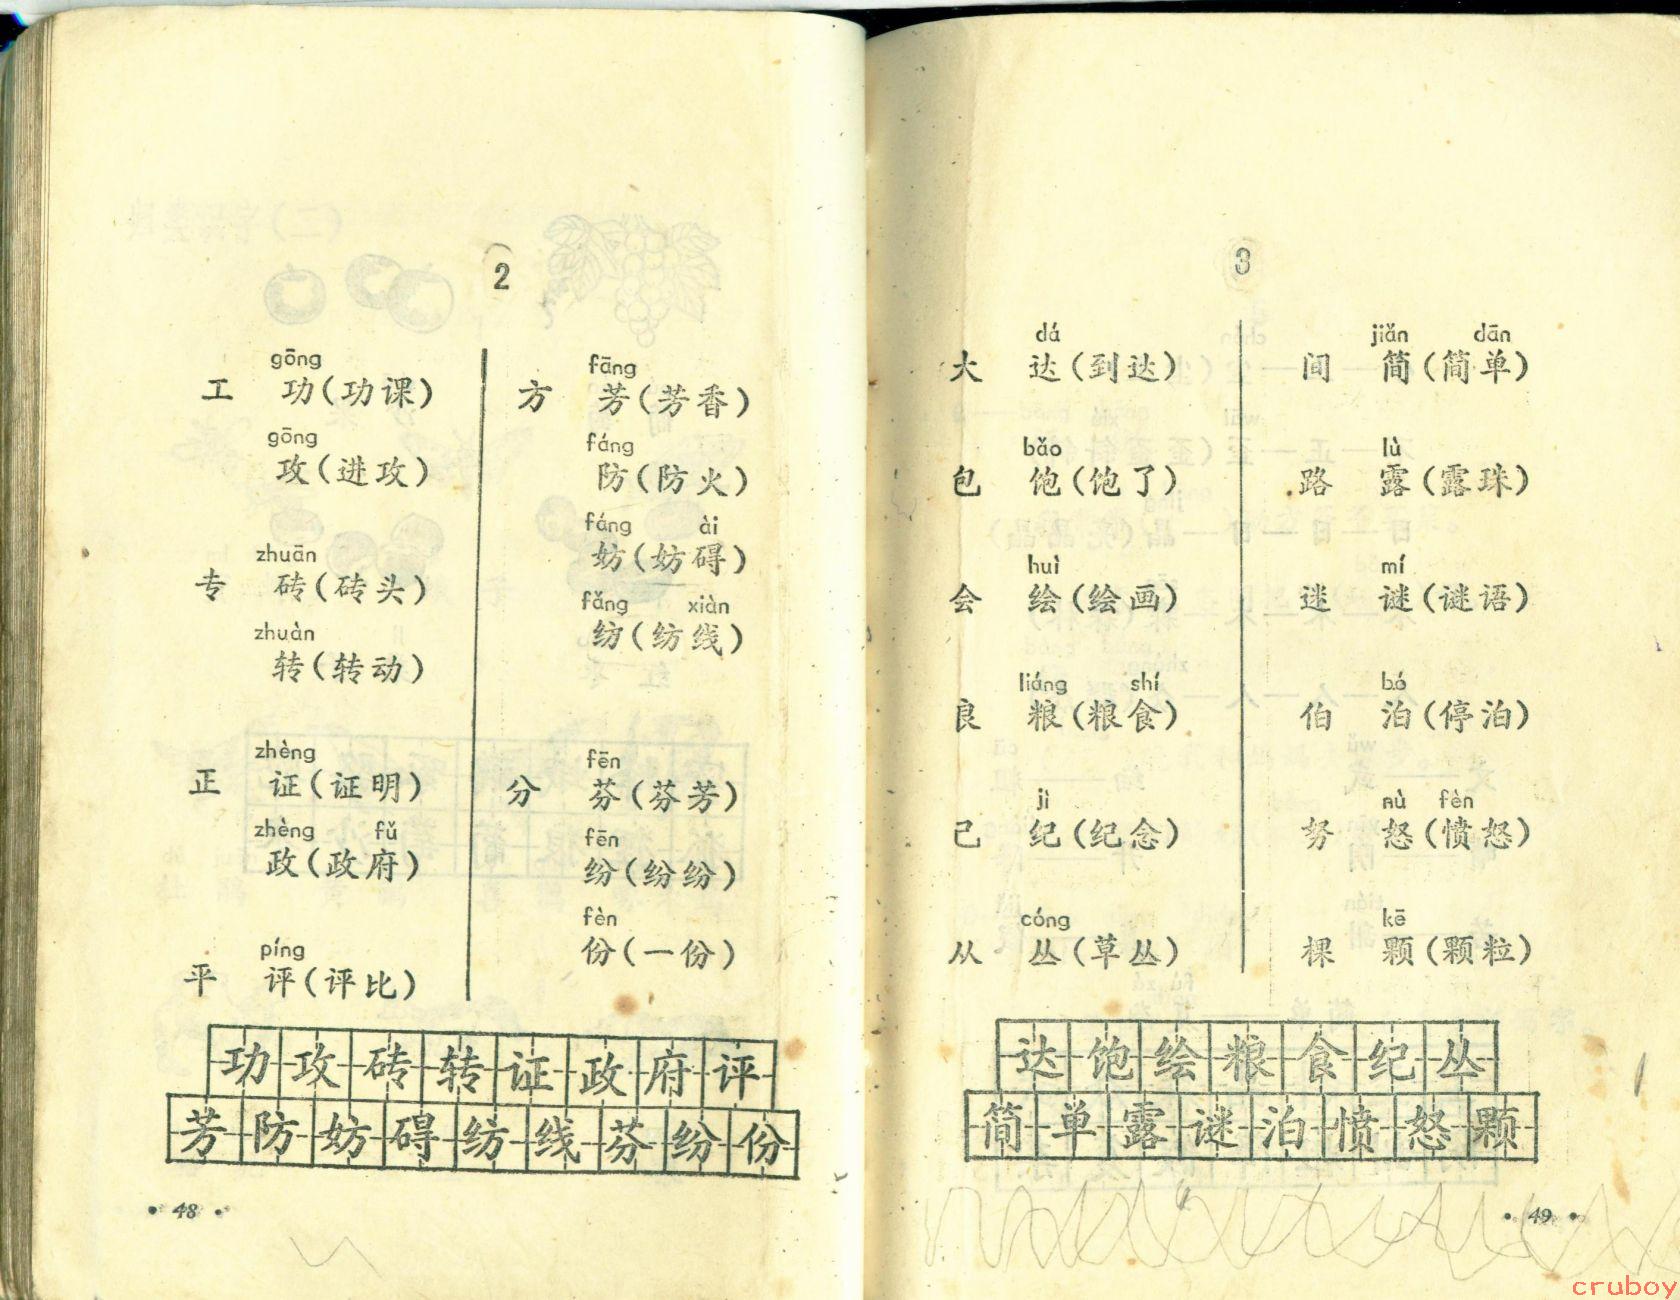 2
gōng
工 功(功课)
gōng
攻(进攻)
zhuān
专 砖(砖头)
zhuàn
转(转动)
zhèng
正 证(证明)
zhèng fǔ
政(政府)
píng
平 评(评比)
fāng
方 芳(芳香)
fáng
防(防火)
fáng ài
妨(妨碍)
fǎng xiàn
纺(纺线)
fēn
分 芬(芬芳)
fēn
纷(纷纷)
fèn
份(一份)
功攻砖转证政府评
芳防妨碍纺线芬纷份
• 48 •
3
dá
大 达(到达)
bǎo
包 饱(饱了)
huì
会 绘(绘画)
liáng shí
良 粮(粮食)
jì
己 纪(纪念)
cóng
从 丛(草丛)
jiǎn dān
间 简(简单)
lù
路 露(露珠)
mí
迷 谜(谜语)
bó
伯 泊(停泊)
nù fèn
努 怒(愤怒)
kē
棵 颗(颗粒)
达饱绘粮食纪丛
简单露谜泊愤怒颗
• 49 •
cruboy